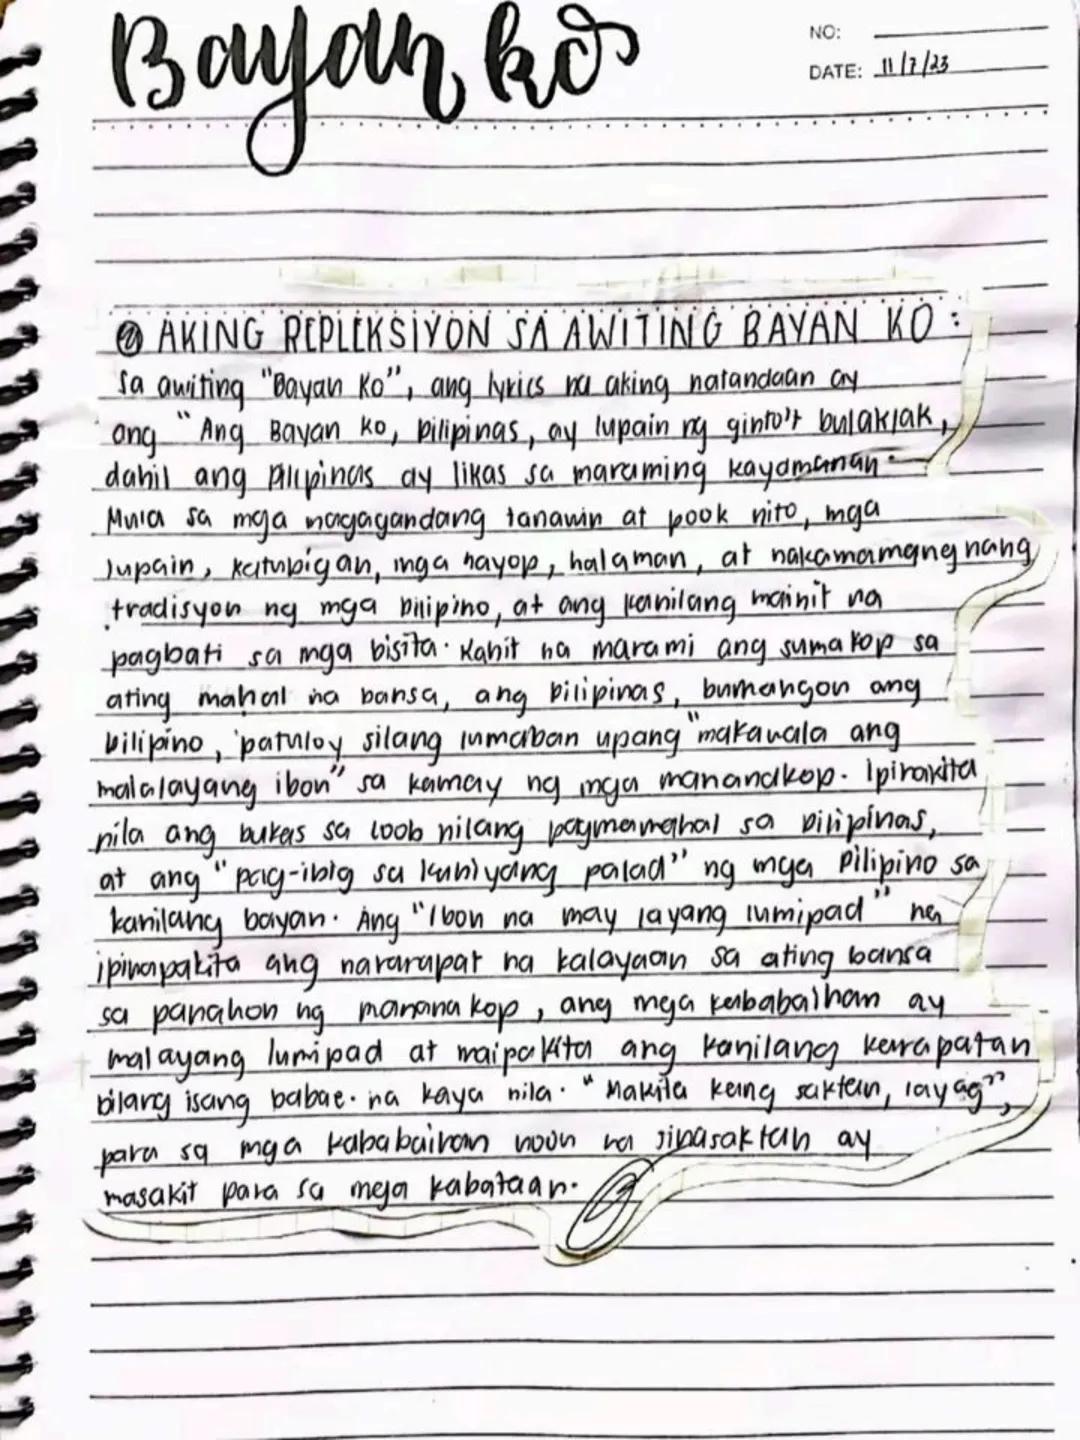 Bayan ko
NO:
DATE: 11/7/23
AKING REPLEKSIYON SA AWITING BAYAN KO:
Sa awiting "Bayan Ko", ang lyrics na aking natandaan ay
ang "Ang Bayan ko, Pilipinas, ay lupain ng ginto't bulaklak,
dahil ang Pilipinas ay likas sa maraming kayamanan.
Mula sa mga magagandang tanawin at pook nito, mga
lupain, katubigan, mga hayop, halaman, at nakamamangnang
tradisyon ng mga Pilipino, at ang kanilang mainit na
pagbati sa mga bisita. Kahit na marami ang sumakop sa
ating mahal na bansa, ang Pilipinas, bumangon ang
Pilipino, patuloy silang lumaban upang "makawala ang
malalayang ibon" sa kamay ng mga mananakop. Ipinakita
nila ang bukas sa loob nilang pagmamahal sa Pilipinas,
at ang "pag-ibig sa kaniyang palad" ng mga Pilipino sa
kanilang bayan. Ang "Ibon na may layang lumipad" na
ipinapakita ang nararapat na kalayaan sa ating bansa
sa panahon ng mananakop, ang mga kababaihan ay
malayang lumipad at maipakita ang kanilang karapatan
bilang isang babae. na kaya nila. "Makita kang saktan, layag",
para sa mga kababaihan noon na sinasaktan ay
masakit para sa mga kabataan.